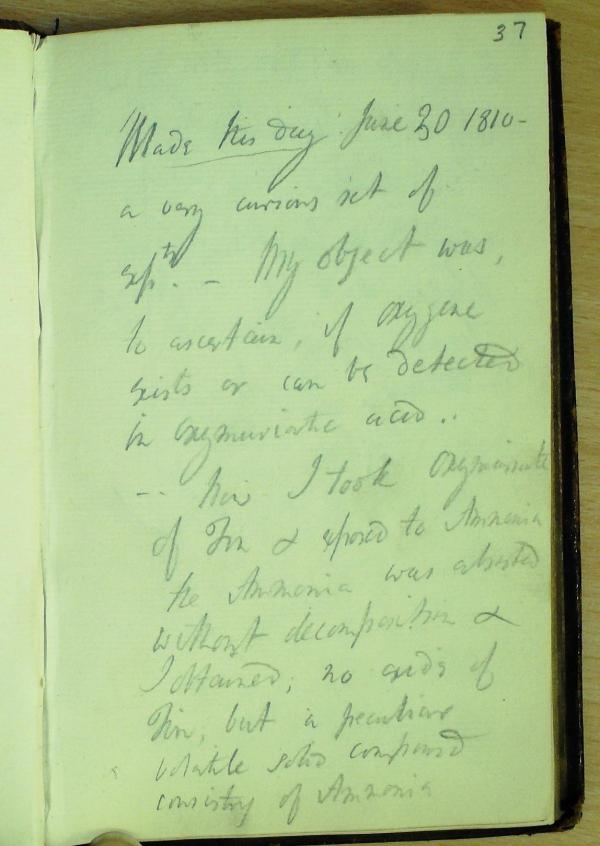 37
Made this day June 20 1810 -
a very curious set of
expts. - My object was,
to ascertain, if oxygene
exists or can be detected
in oxymuriatic acid ..
-- I took oxymuriate
of Tin & exposed to Ammonia
the Ammonia was absorbed
without decomposition &
I obtained, no oxide of
Tin, but a peculiar
volatile solid compound
consistg of Ammonia